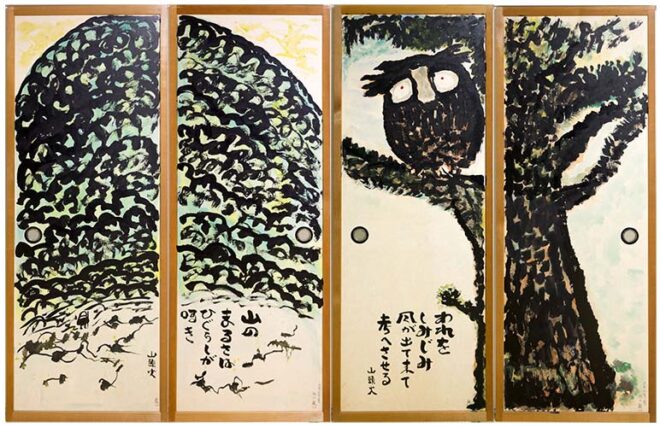 われを
しみじみ
風が出て来て
考へさせる
山頭火
山の
まるさは
ひぐらしが
鳴き
山頭火